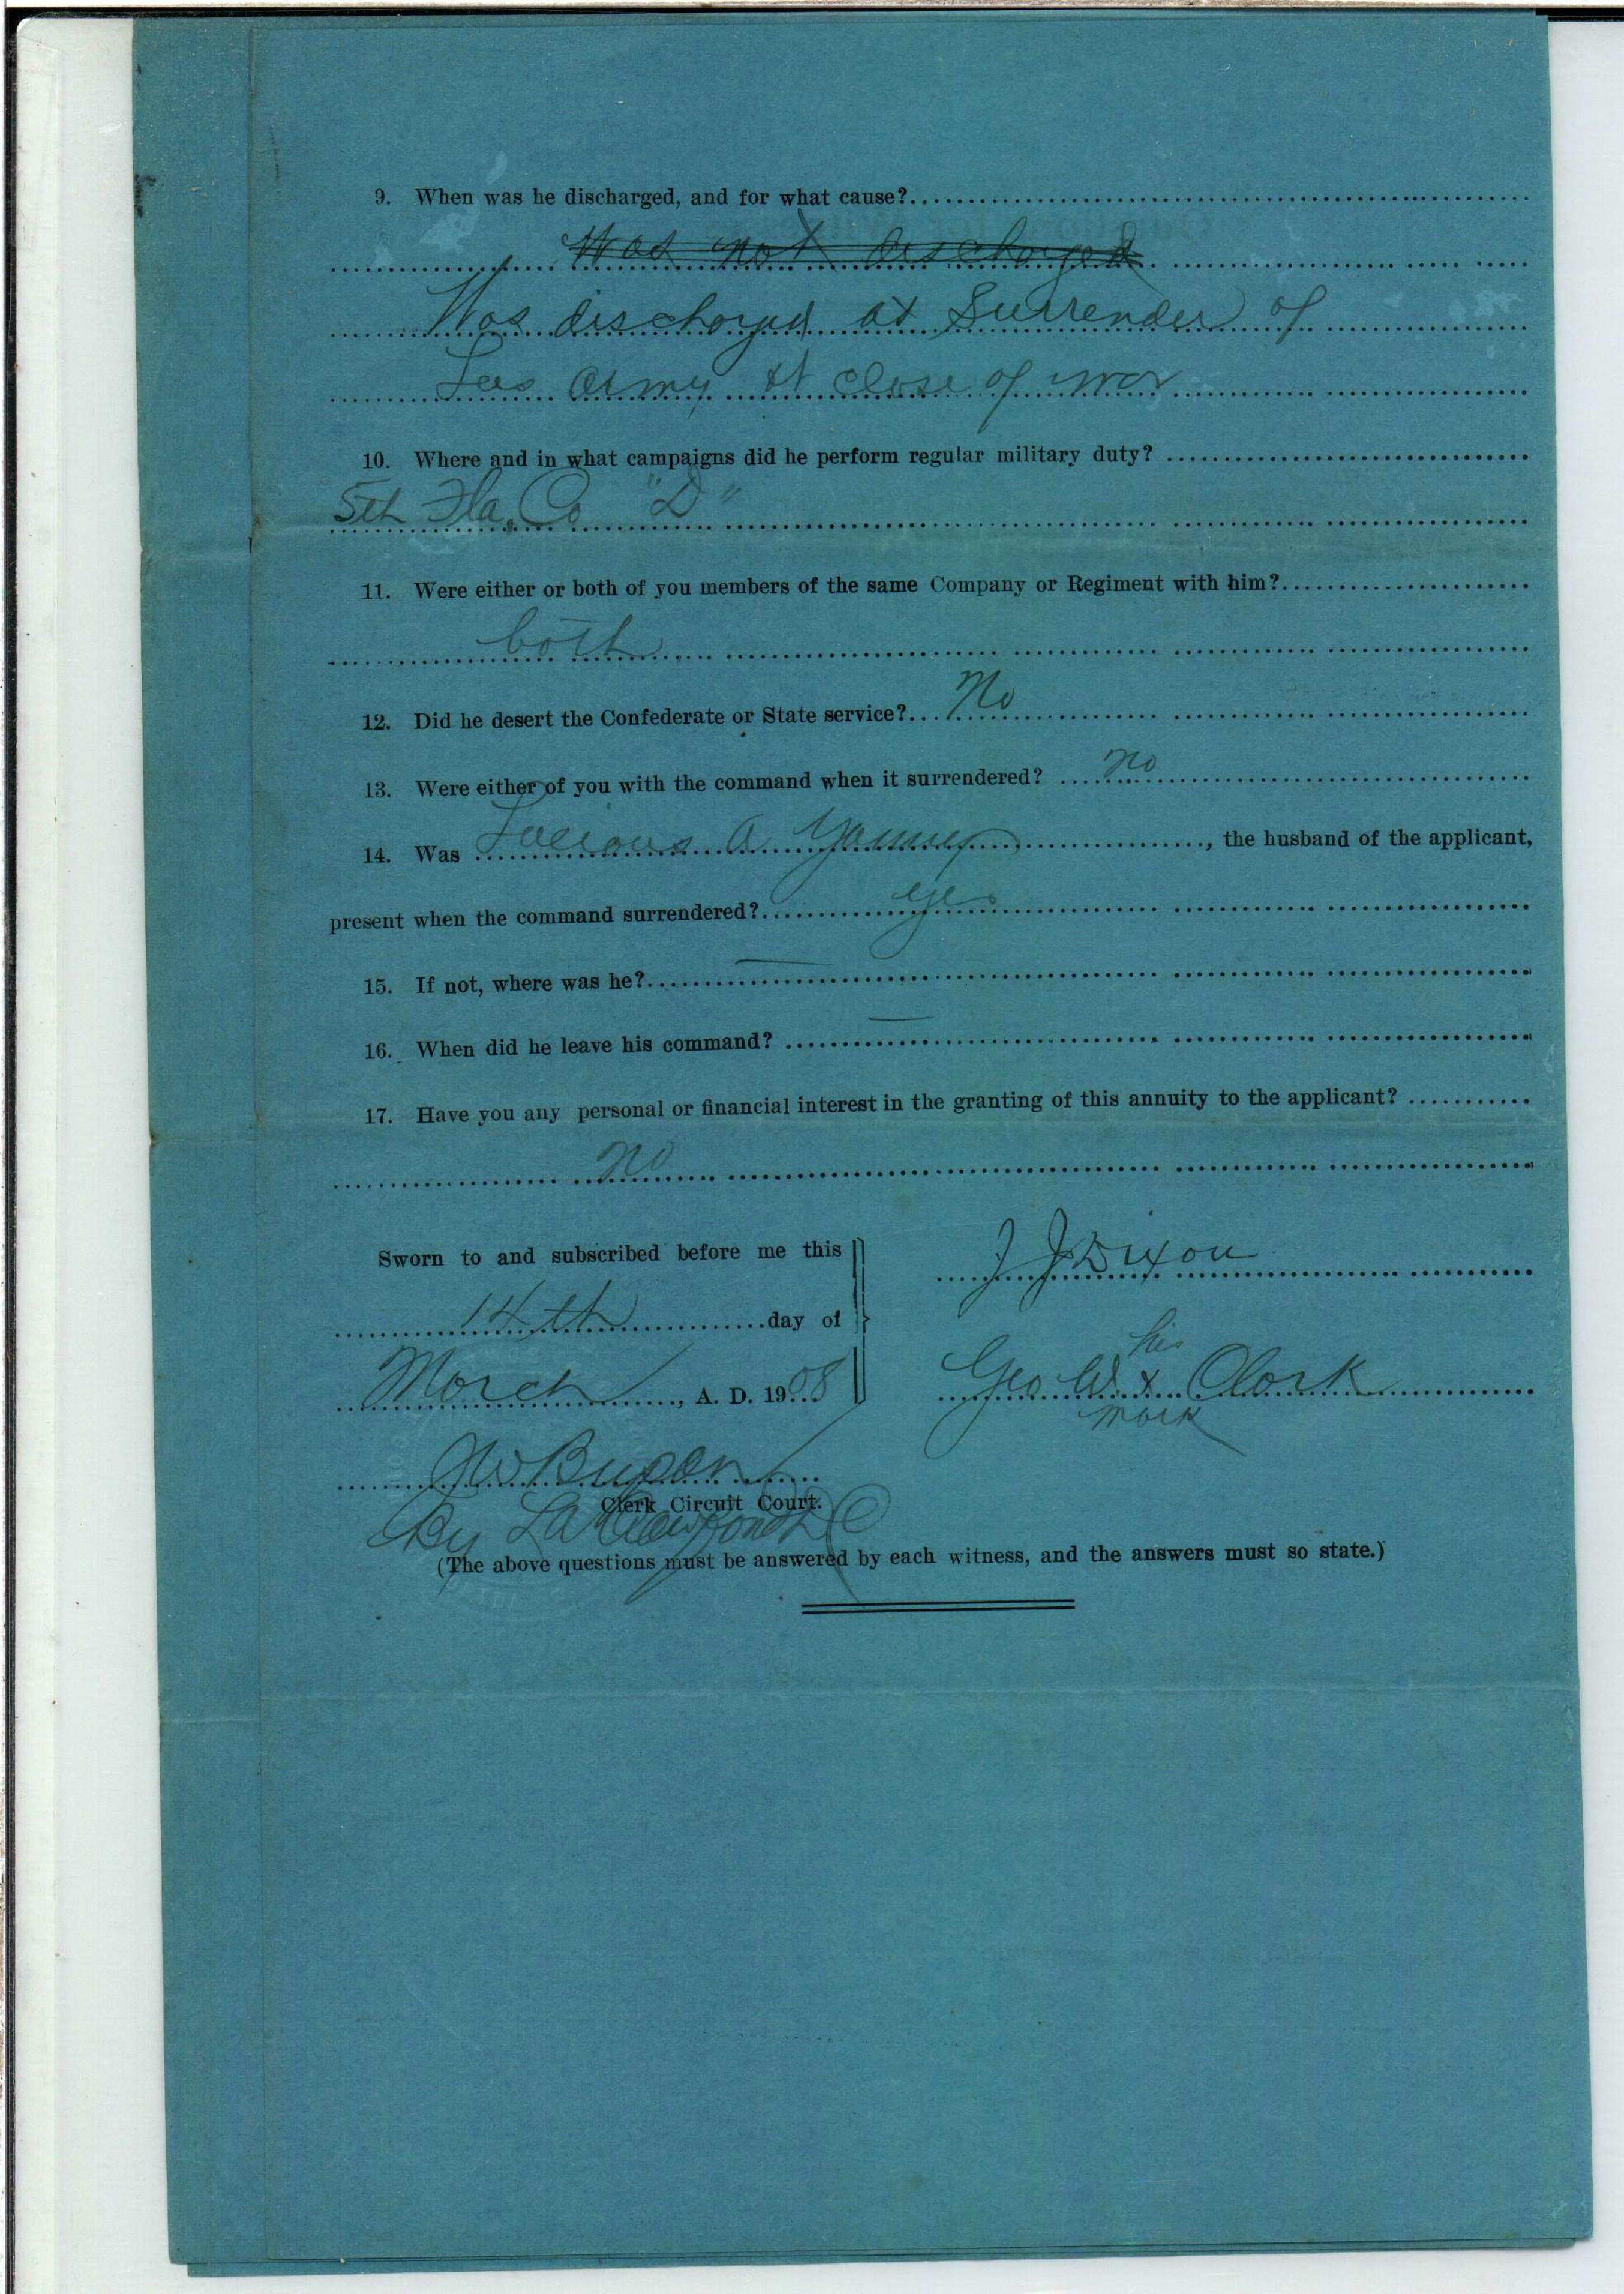 9. When was he discharged, and for what cause?
Was not discharged
Was discharged at Surrender of
Lees Army at close of war
10. Where and in what campaigns did he perform regular military duty?
5th Fla. Co "D"
11. Were either or both of you members of the same Company or Regiment with him?
both
12. Did he desert the Confederate or State service? No
13. Were either of you with the command when it surrendered? no
14. Was A , the husband of the applicant,
present when the command surrendered? yes
15. If not, where was he? —
16. When did he leave his command? —
17. Have you any personal or financial interest in the granting of this annuity to the applicant?
no
Sworn to and subscribed before me this
14th day of
March, A. D. 1908
J J Dixon
his
Geo W. x Clark
mark
Clerk Circuit Court.
By
(The above questions must be answered by each witness, and the answers must so state.)